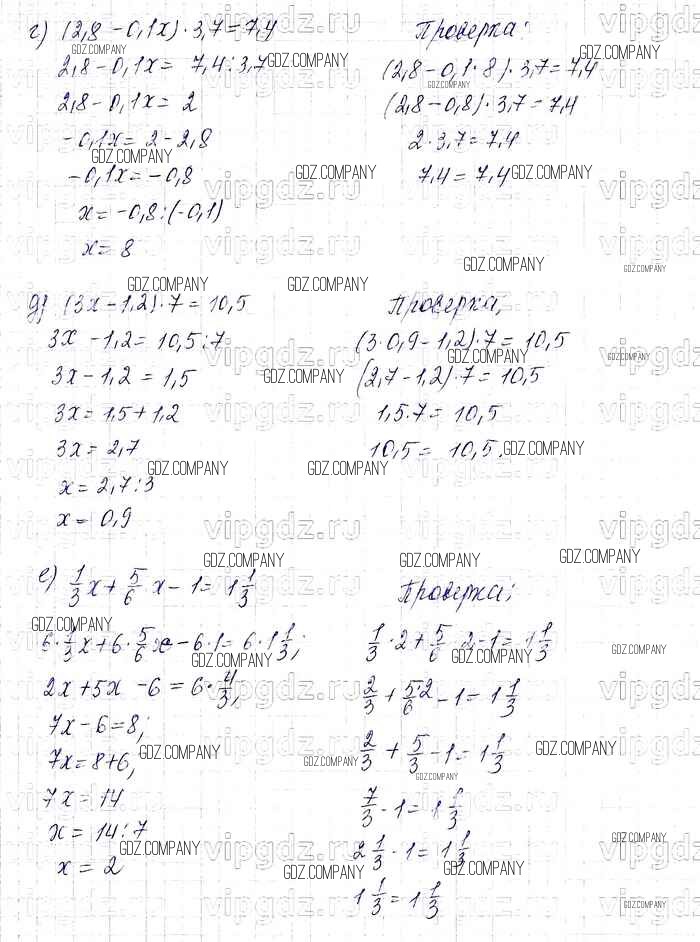 г) (2,8 – 0,1x) · 3,7 = 7,4
2,8 – 0,1x = 7,4 : 3,7
2,8 – 0,1x = 2
–0,1x = 2 – 2,8
–0,1x = –0,8
x = –0,8 : (–0,1)
x = 8
Проверка:
(2,8 – 0,1 · 8) · 3,7 = 7,4
(2,8 – 0,8) · 3,7 = 7,4
2 · 3,7 = 7,4
7,4 = 7,4
д) (3x – 1,2) · 7 = 10,5
3x – 1,2 = 10,5 : 7
3x – 1,2 = 1,5
3x = 1,5 + 1,2
3x = 2,7
x = 2,7 : 3
x = 0,9
Проверка,
(3 · 0,9 – 1,2) · 7 = 10,5
(2,7 – 1,2) · 7 = 10,5
1,5 · 7 = 10,5
10,5 = 10,5.
е) 1/3 x + 5/6 x – 1 = 1 1/3
6 · 1/3 x + 6 · 5/6 x – 6 · 1 = 6 · 1 1/3;
2x + 5x – 6 = 6 · 4/3;
7x – 6 = 8;
7x = 8 + 6,
7x = 14
x = 14 : 7
x = 2
Проверка;
1/3 · 2 + 5/6 · 2 – 1 = 1 1/3
2/3 + 5·2/6 – 1 = 1 1/3
2/3 + 5/3 – 1 = 1 1/3
7/3 – 1 = 1 1/3
2 1/3 – 1 = 1 1/3
1 1/3 = 1 1/3
GDZ.COMPANY
vipgdz.ru